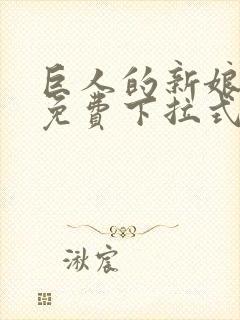 巨人的新娘
免费下拉式
湫宸